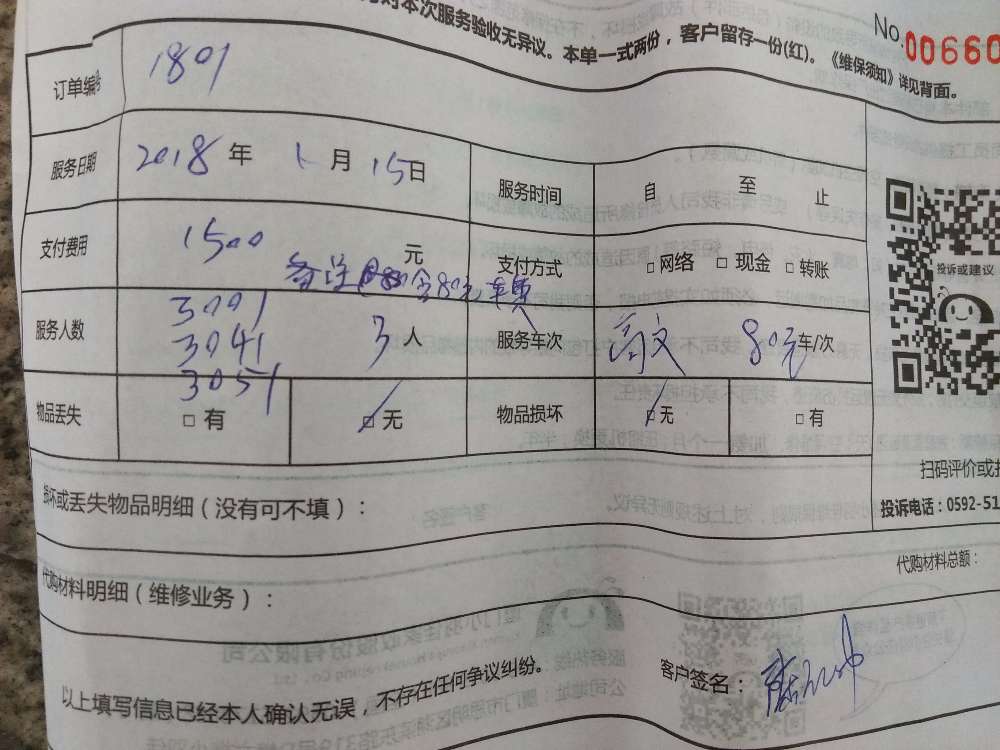 对本次服务验收无异议。本单一式两份，客户留存一份(红)。《维保须知》详见背面。
No.00660
订单编号 1801
服务日期 2018 年 1 月 15 日 服务时间 自 至 止
支付费用 1500 元 支付方式 □网络 □ 现金 □ 转账
含80元车费
服务人数 3001 3 人 服务车次 80元 车/次
3041
3051
物品丢失 □ 有 □ 无 物品损坏 □ 无 □ 有
投诉或建议
扫码评价或
投诉电话：0592-51
损坏或丢失物品明细（没有可不填）：
代购材料明细（维修业务）：
代购材料总额：
以上填写信息已经本人确认无误，不存在任何争议纠纷。
客户签名：